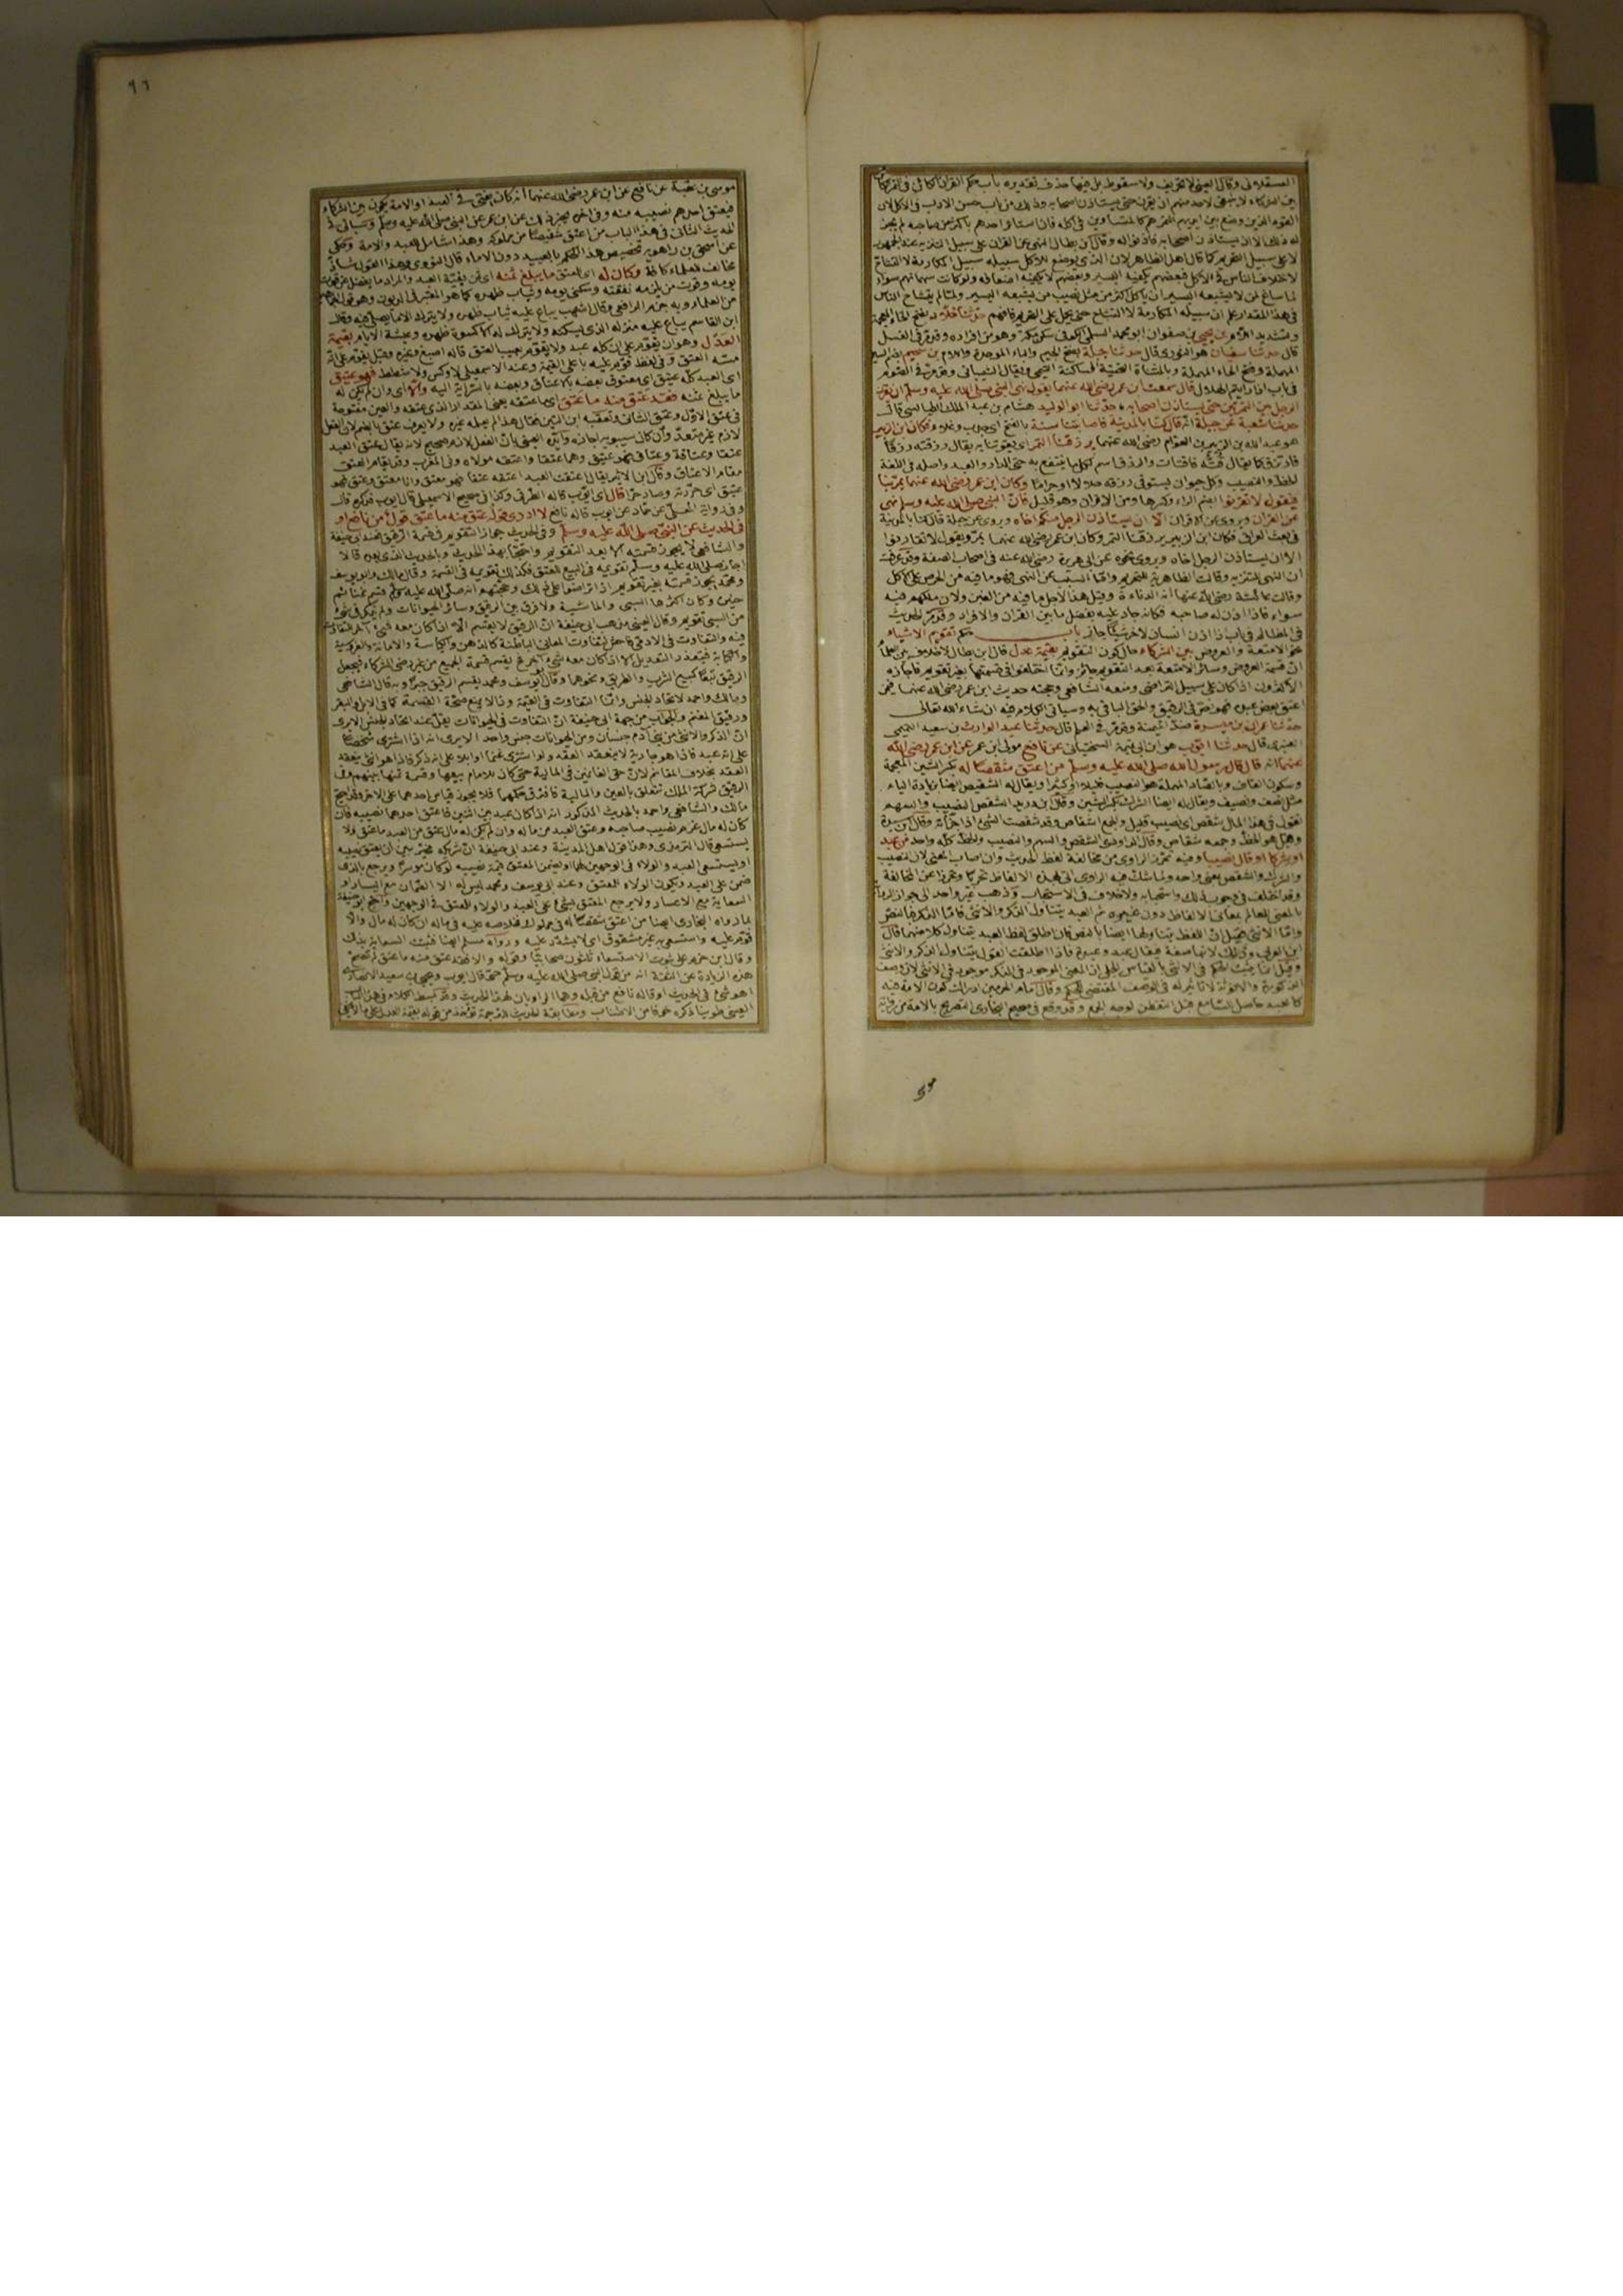 العسقلانى وقال العينى لا تحريف ولا سقوط بل فيها حذف تقديره باب حكم القران الكائن فى التمر الكائن
بين الشركاء لا ينبغى لاحد منهم ان يقرن حتى يستاذن اصحابه وذلك من باب حسن الادب فى الاكل لان
القوم الذين وضع بين ايديهم التمر هم كالمتساوين فى اكله فان استاثر احدهم باكثر من صاحبه لم يجز
له ذلك الا ان يستاذن اصحابه فاذنوا له وقال ابن بطال النهى عن القران على سبيل التنزيه عند الجمهور
لا على سبيل التحريم كما قال اهل الظاهر لان الذى يوضع للاكل سبيله سبيل المكارمة لا التشاح
لاختلاف الناس فى الاكل فبعضهم يكفيه اليسير وبعضهم لا يكفيه اضعافه ولو كانت سهمانهم سواء
لما ساغ لمن لا يشبعه اليسير ان ياكل اكثر من مثل نصيب من يشبعه اليسير ولما لم يتشاح الناس
فى هذا المقدار علم ان سبيله المكارمة لا التشاح حتى يحمل على التحريم فافهم حدثنا خلاد بفتح الخاء المعجمة
وتشديد اللام بن يحيى بن صفوان ابو محمد السلمى الكوفى سكن مكة وهو من افراده وقد مر فى الغسل
قال حدثنا سفيان هو الثورى قال حدثنا جبلة بفتح الجيم والباء الموحدة واللام بن سحيم بضم السين
المهملة وفتح الحاء المهملة وبالمثناة التحتية الساكنة التيمى ويقال الشيبانى وقد مر فى الصوم
فى باب اذا رايتم الهلال قال سمعت ابن عمر رضى الله عنهما يقول نهى النبى صلى الله عليه وسلم ان يقرن
الرجل بين التمرتين حتى يستاذن اصحابه حدثنا ابو الوليد هشام بن عبد الملك الطيالسى قال
حدثنا شعبة عن جبلة انه قال كنا بالمدينة فاصابتنا سنة بالفتح اى جدب وغلاء وكان ابن الزبير
هو عبد الله بن الزبير بن العوام رضى الله عنهما يرزقنا التمر اى يقوتنا به يقال رزقته رزقا
فارتزق كما يقال قته فاقتات والرزق اسم لكل ما ينتفع به حتى الدار والعبد واصله فى اللغة
الحظ والنصيب وكل حيوان يستوفى رزقه حلالا او حراما وكان ابن عمر رضى الله عنهما يمر بنا
فيقول لا تقرنوا بضم الراء وكسرها ومن الاقران وهو قليل فان النبى صلى الله عليه وسلم نهى
عن القران ويروى عن الاقران الا ان يستاذن الرجل منكم اخاه ويروى عن جبلة قال كنا بالمدينة
فى بعث العراق فكان ابن الزبير يرزقنا التمر وكان ابن عمر رضى الله عنهما يمر ويقول لا تقارنوا
الا ان يستاذن الرجل اخاه ويروى نحوه عن ابى هريرة رضى الله عنه فى اصحاب الصفة وقد عرفت
ان النهى للتنزيه وقالت الظاهرية للتحريم واما السبب عن النهى فهو ما فيه من الحرص على الاكل
وقالت عائشة رضى الله عنها انه الدناءة وقيل هذا لاجل ما فيه من الغبن ولان ملكهم فيه
سواء فاذا اذن له صاحبه فكانه جاد عليه بفضل ما بين القران والافراد وقد مر الحديث
فى المظالم فى باب اذا اذن انسان لاخر شيئا جاز باب تقويم الاشياء
نحو الامتعة والعروض بين الشركاء حال كون التقويم بقيمة عدل قال ابن بطال لا خلاف بين العلماء
ان قسمة العروض وسائر الامتعة بعد التقويم جائز وانما اختلفوا فى قسمتها بغير تقويم فاجازه
الاكثرون اذا كان على سبيل التراضى ومنعه الشافعى وحجته حديث ابن عمر رضى الله عنهما فيمن
اعتق بعض عبده فهو نص فى الرقيق والحق الباقى به وسياتى الكلام فيه ان شاء الله تعالى
حدثنا عمران بن ميسرة ضد الميمنة وقد مر فى العلم قال حدثنا عبد الوارث بن سعيد التميمى
العنبرى قال حدثنا ايوب هو ابن ابى تميمة السختيانى عن نافع مولى ابن عمر عن ابن عمر رضى الله
عنهما انه قال قال رسول الله صلى الله عليه وسلم من اعتق شقصا له بكسر الشين المعجمة
وسكون القاف وبالصاد المهملة هو النصيب قليلا او كثيرا ويقال له الشقيص ايضا بزيادة الياء
مثل نصف ونصيف ويقال له ايضا الشرك بكسر الشين وقال ابن دريد الشقص النصيب والسهم
تقول فى هذا المال شقص اى نصيب قليل والجمع اشقاص وقد شقصت الشئ اذا جزأته وقال ابن سيدة
وقيل هو الحظ وجمعه شقاص وقال الداودى الشقص والسهم والنصيب والحظ كله واحد من عبد
او شركا او قال نصيبا وفيه تحرز الراوى من مخالفة لفظ الحديث وان اصاب المعنى لان النصيب
والشرك والشقص بمعنى واحد ولما شك فيه الراوى اتى بهذه الالفاظ تحريا وتحرزا عن المخالفة
وقد اختلف فى وجوب ذلك واستحبابه ولا خلاف فى الاستحباب وذهب غير واحد الى جواز الرواية
بالمعنى للعالم بمعانى الالفاظ دون غيره ثم العبد يتناول الذكر والانثى فاما الذكر فبالنص
واما الانثى فقيل ان اللفظ يتناولها ايضا بالنص فان اطلق لفظ العبد يتناول كلا منهما قال
ابن العربى وذلك لانها صفة فيقال عبد وعبدة فاذا اطلقت القول يتناول الذكر والانثى
وقيل انما يثبت الحكم فى الانثى بالقياس الجلى اذ المعنى الموجود فى الذكر موجود فى الانثى لان وصف
الذكورة والانوثة لا تاثير له فى الوصف المقتضى للحكم وقال امام الحرمين ادراك كون الامة فيه
كالعبد حاصل للسامع قبل التفطن لوجه الجمع وقد وقع فى صحيح البخارى التصريح بالامة من رواية
٩٦
موسى بن عقبة عن نافع عن ابن عمر رضى الله عنهما انه كان يفتى فى العبد او الامة يكون بين الشركاء
فيعتق احدهم نصيبه منه وفى اخره يخبر ذلك عن ابن عمر عن النبى صلى الله عليه وسلم وسياتى فى
الحديث الثانى فى هذا الباب من اعتق شقيصا من مملوكه وهذا شامل للعبد والامة وحكى
عن اسحق بن راهويه تخصيص هذا الحكم بالعبيد دون الاماء قال النووى وهذا القول شاذ
مخالف للعلماء كافة وكان له اى للمعتق ما يبلغ ثمنه اى ثمن بقية العبد والمراد ما يفضل عن قوت
يومه وقوت من يلزمه نفقته وسكنى يومه وثياب ظهره كما هو المعتبر فى الديون وهو قول
من العلماء وبه جزم الرافعى وقال اشهب يباع عليه ثياب ظهره ولا يترك الا ما يصلى فيه وقال
ابن القاسم يباع عليه منزله الذى يسكنه ولا يترك له الا كسوة ظهره وعيشة الايام بقيمة
العدل وهو ان يقوم على ان كله عبد ولا يقوم بعيب العتق قاله اصبغ وغيره وقيل يقوم على انه
مسه العتق وفى لفظ قوم عليه باعلى القيمة وعند الاسمعيلى لا وكس ولا شطط فهو عتيق
اى العبد كله عتيق اى معتوق بعضه بالاعتاق وبعضه بالسراية اليه والا اى وان لم يكن له
ما يبلغ ثمنه فقد عتق منه ما عتق اى ما عتقه يعنى المقدار الذى عتقه والعين مفتوحة
فى عتق الاول وعتق الثانى وتعقبه ابن التين فقال هذا لم يقله غيره ولا يعرف عتق بالضم لان الفعل
لازم غير متعد وان كان سيبويه اجازه وايده العينى بان الفعل لانه صحيح لانه يقال عتق العبد
عتقا وعتاقة وعتاقا فهو عتيق وهما عتقا واعتقه مولاه وفى المغرب وقد يقام العتق
مقام الاعتاق وقال ابن الاثير يقال اعتقت العبد اعتقه عتقا فهو معتق وانا معتق وعتق فهو
عتيق اى حررته وصار حرا قال اى ايوب كما قاله الطرقى وكذا فى صحيح الاسمعيلى قال ايوب فذكره قال
وفى رواية المعلى عن حماد عن ايوب قاله نافع لا ادرى قوله عتق منه ما عتق قول من نافع او
فى الحديث عن النبى صلى الله عليه وسلم وفى الحديث جواز التقويم فى قسمة الرقيق فعند ابى حنيفة
والشافعى لا يجوز قسمته الا بعد التقويم واحتجا بهذا الحديث وبالحديث الذى بعده قالا
اجاز صلى الله عليه وسلم تقويمه فى البيع للعتق فكذلك تقويمه فى القسمة وقال مالك وابو يوسف
ومحمد يجوز قسمته بغير تقويم اذا تراضوا على ذلك وحجتهم انه صلى الله عليه وسلم قسم غنائم
حنين وكان اكثرها السبى والماشية ولا فرق بين الرقيق وسائر الحيوانات ولم يذكر فى شئ
من السبى تقويم وقال العينى مذهب ابى حنيفة ان الرقيق لا يقسم الا ان كان معه شئ اخر للتفاوت
فيه والتفاوت فى الادمى فاحش لتفاوت المعانى الباطنة كالذهن والكياسة والامانة والفروسية
والكتابة فيتعذر التعديل الا اذا كان معه شئ اخر فح يقسم قسمة الجميع من غير رضى الشركاء فيجعل
الرقيق تبعا كبيع الشرب والطريق ونحوهما وقال ابو يوسف ومحمد يقسم الرقيق جبرا وبه قال الشافعى
ومالك واحمد لاتحاد الجنس وانما التفاوت فى القيمة وذا لا يمنع صحة القسمة كما فى الابل والبقر
ورقيق المغنم والجواب من جهة ابى حنيفة ان التفاوت فى الحيوانات يقل عند اتحاد الجنس الا يرى
ان الذكر والانثى من بنى آدم جنسان ومن الحيوانات جنس واحد الا يرى انه اذا اشترى شخصا
على انه عبد فاذا هو جارية لا ينعقد العقد ولو اشترى غنما او ابلا على انه ذكر فاذا هو انثى ينعقد
العقد بخلاف المغانم لان حق الغانمين فى المالية حتى كان للامام بيعها وقسمة ثمنها بينهم وفى
الرقيق شركة الملك تتعلق بالعين والمالية فافترق حكمهما فلا يجوز قياس احدهما على الاخر وقد احتج
مالك والشافعى واحمد بالحديث المذكور انه اذا كان عبد بين اثنين فاعتق احدهما نصيبه فان
كان له مال غرم نصيب صاحبه وعتق العبد من ماله وان لم يكن له مال عتق من العبد ما عتق ولا
يستسعى قال الترمذى وهذا قول اهل المدينة وعند ابى حنيفة ان شريكه مخير بين ان يعتق نصيبه
او يستسعى العبد والولاء فى الوجهين لهما او يضمن المعتق قيمة نصيبه لو كان موسرا ويرجع بالذى
ضمن على العبد ويكون الولاء للمعتق وعند ابى يوسف ومحمد ليس له الا الضمان مع اليسار او
السعاية مع الاعسار ولا يرجع المعتق بشئ على العبد والولاء للمعتق فى الوجهين واحتج ابو حنيفة
بما رواه البخارى ايضا من اعتق شقصا له فى مملوك فخلاصه عليه فى ماله ان كان له مال والا
قوم عليه واستسعى به غير مشقوق اى لا يشدد عليه ورواه مسلم ايضا فثبت السعاية بذلك
وقال ابن حزم على ثبوت الاستسعاء ثلثون صحابيا وقوله والا فقد عتق منه ما عتق لم تصح
هذه الزيادة عن الثقة انه من قول النبى صلى الله عليه وسلم حتى قال ايوب ويحيى بن سعيد الانصارى
اهو شئ فى الحديث او قاله نافع من قبله وهما الراويان لهذا الحديث وقد بسط الكلام فى هذا الباب
العينى طوينا ذكره خوفا من الاطناب ومطابقة الحديث للترجمة تؤخذ من قوله بقيمة العدل